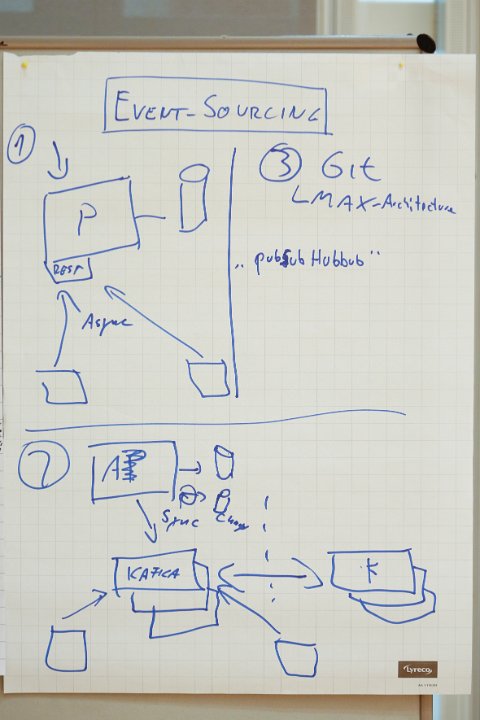 EVENT-SOURCING
1
P
REST
Async
3 Git
LMAX-Architecture
"pubsub Hubbub"
2
Sync
KAFKA
K
Lyreco